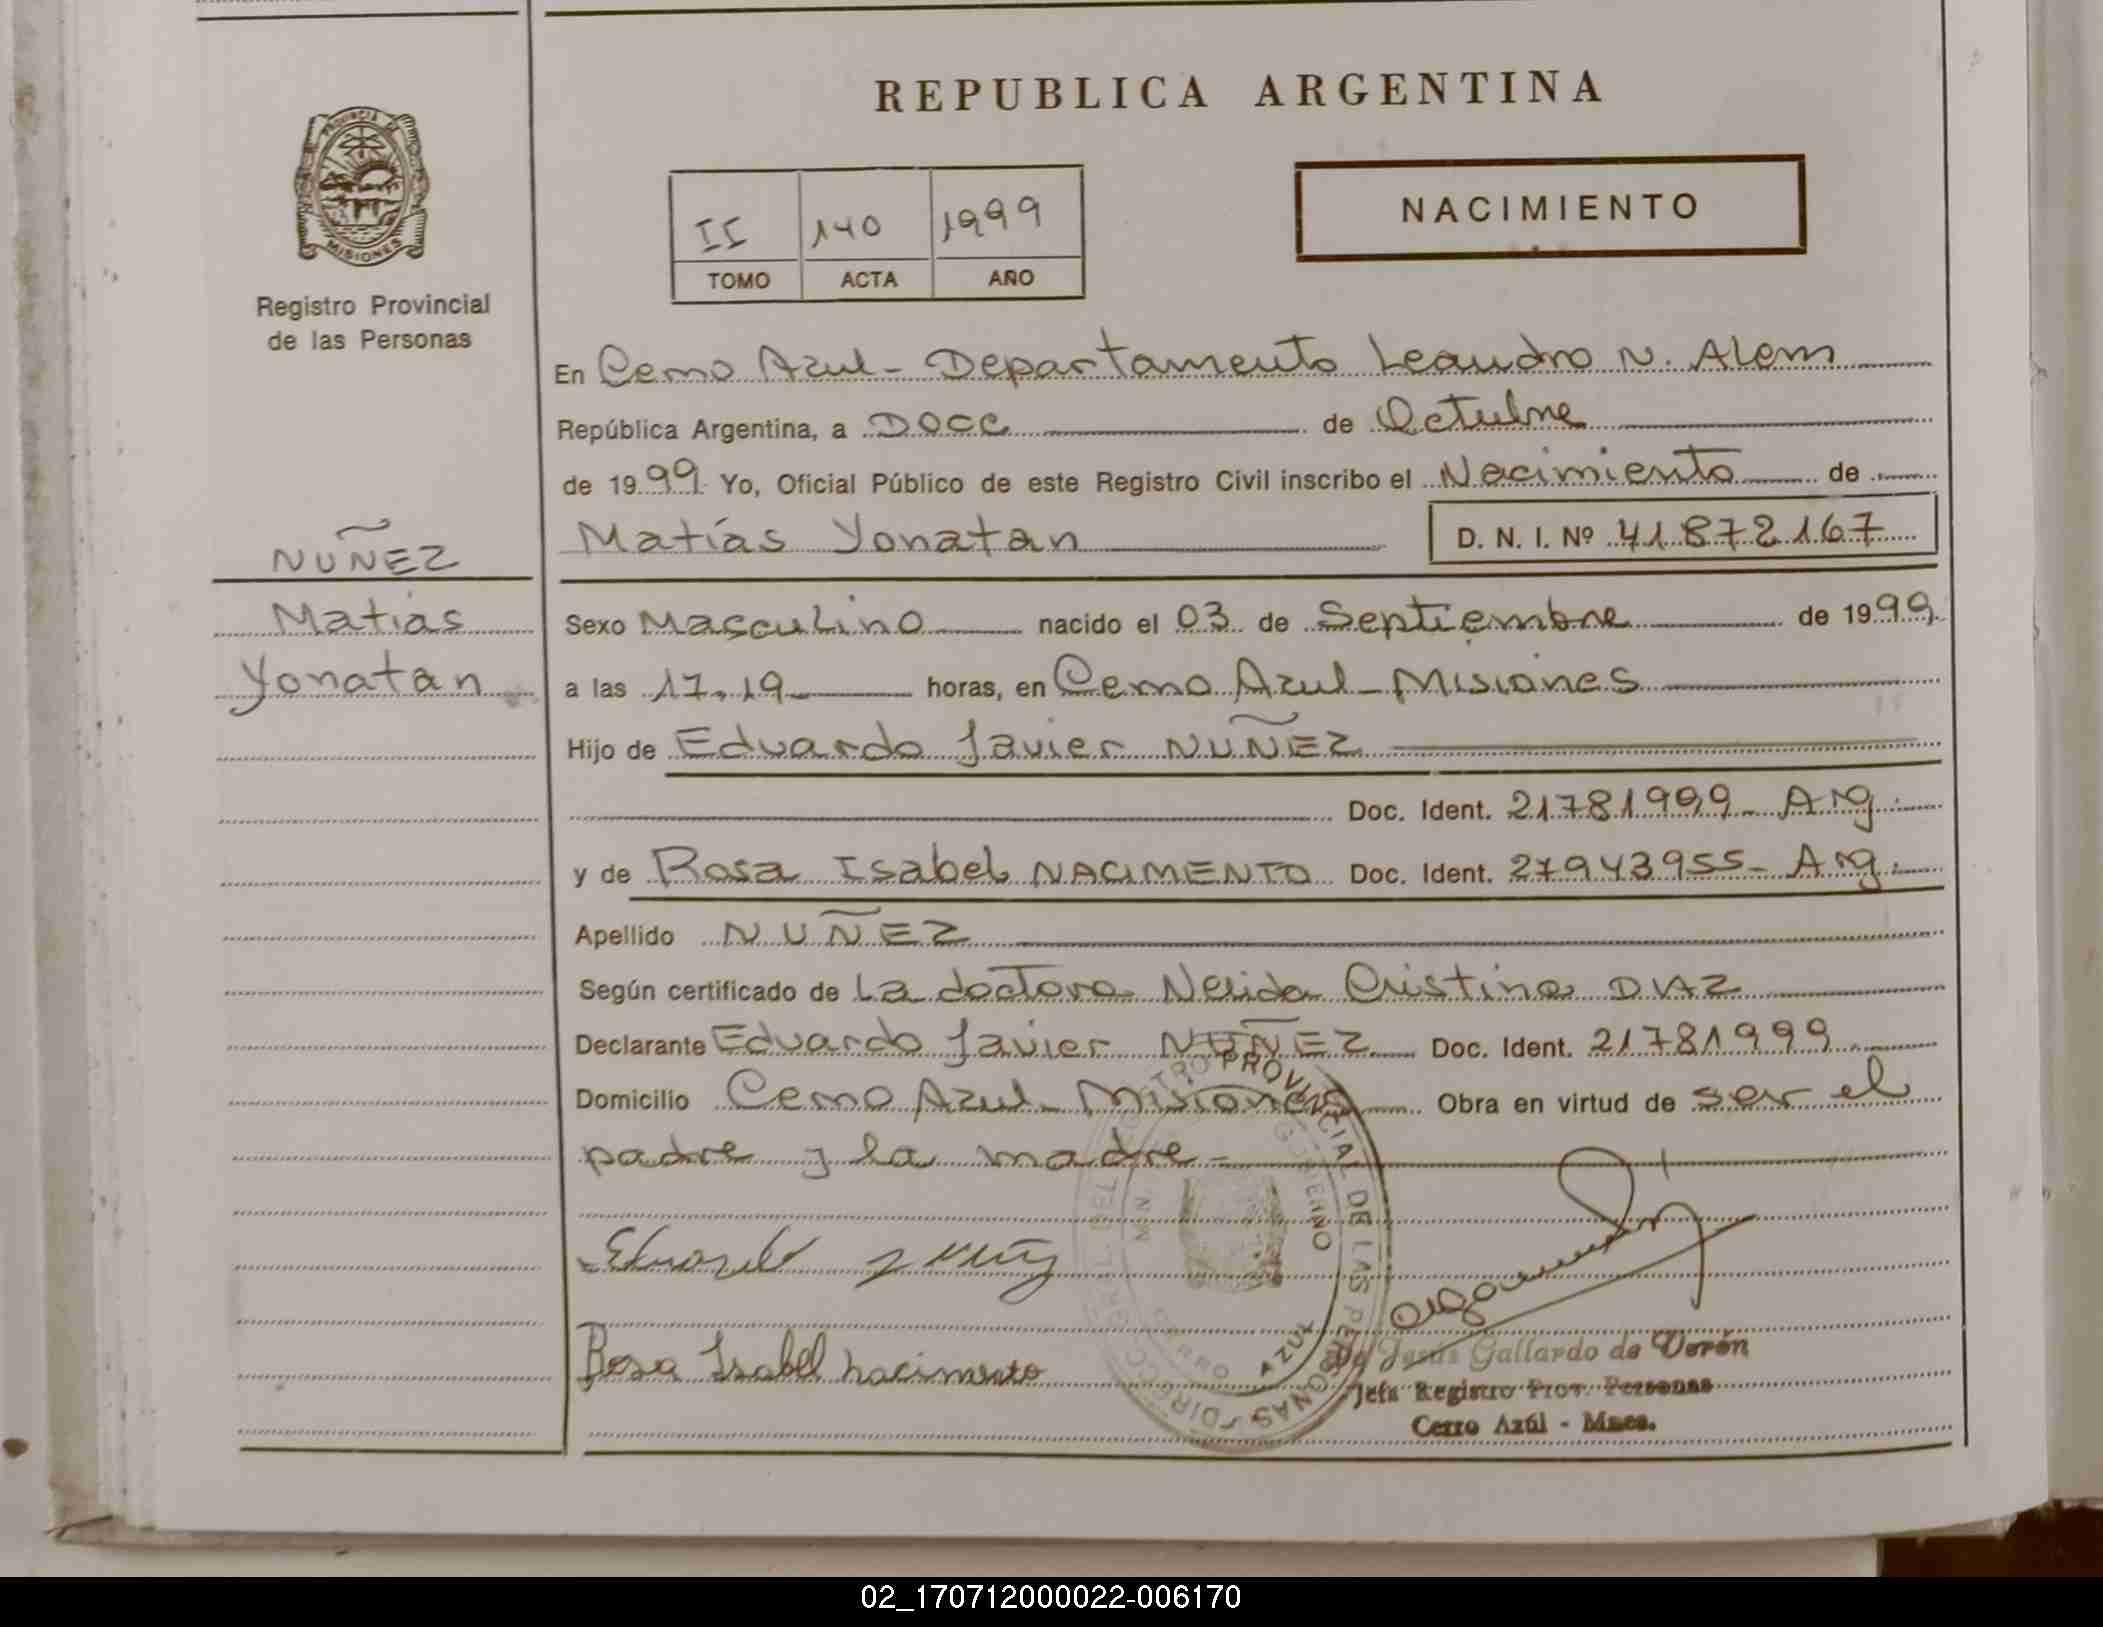 REPUBLICA ARGENTINA
PROVINCIA DE
MISIONES
Registro Provincial
de las Personas
II 140 1999
TOMO ACTA AÑO
NACIMIENTO
En Cerro Azul - Departamento Leandro N. Alem
República Argentina, a DOCE de Octubre
de 1999 Yo, Oficial Público de este Registro Civil inscribo el Nacimiento de
Matías Yonatan D. N. I. Nº 41872167
NUÑEZ
Matías
Yonatan
Sexo Masculino nacido el 03 de Septiembre de 1999
a las 17,19 horas, en Cerro Azul - Misiones
Hijo de Eduardo Javier NUÑEZ
Doc. Ident. 21781999 - Arg.
y de Rosa Isabel NACIMENTO Doc. Ident. 27943955 - Arg.
Apellido NUÑEZ
Según certificado de La doctora Nelida Cristina DIAZ
Declarante Eduardo Javier NUÑEZ Doc. Ident. 21781999
Domicilio Cerro Azul - Misiones Obra en virtud de ser el
padre y la madre -
PROVINCIAL DE LAS PERSONAS
GOBIERNO
CERRO AZUL
Rosa Isabel nacimento
Jesús Gallardo de Verón
Jefa Registro Prov. Personas
Cerro Azúl - Mnes.
02_170712000022-006170